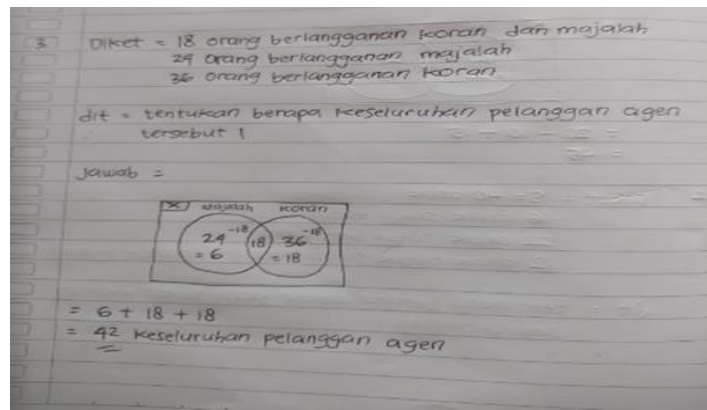 3 Diket = 18 orang berlangganan koran dan majalah
24 orang berlangganan majalah
36 orang berlangganan koran
dit = tentukan berapa keseluruhan pelanggan agen
tersebut !
Jawab =
X majalah koran
24 -18 18 36 -18
= 6 = 18
= 6 + 18 + 18
= 42 keseluruhan pelanggan agen